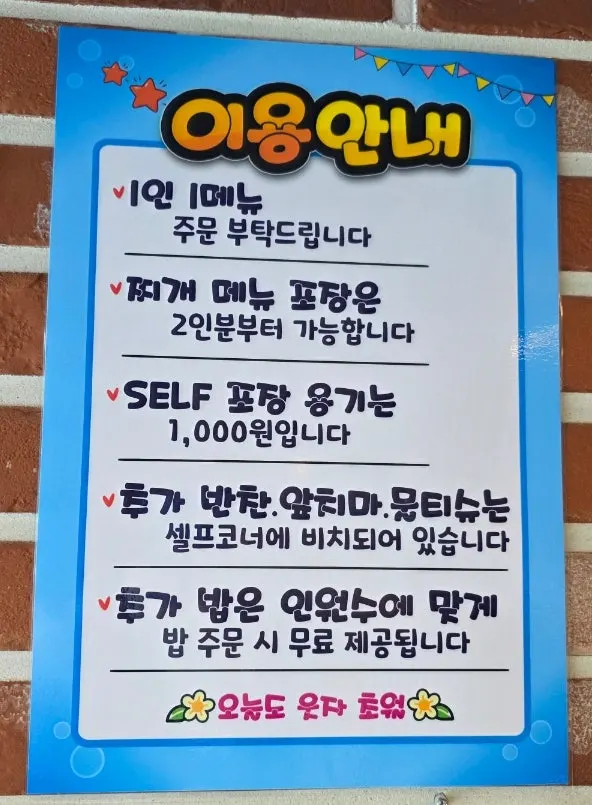 이용안내
1인 1메뉴
주문 부탁드립니다
찌개 메뉴 포장은
2인분부터 가능합니다
SELF 포장 용기는
1,000원입니다
추가 반찬.앞치마.물티슈는
셀프코너에 비치되어 있습니다
추가 밥은 인원수에 맞게
밥 주문 시 무료 제공됩니다
오늘도 웃자 초원